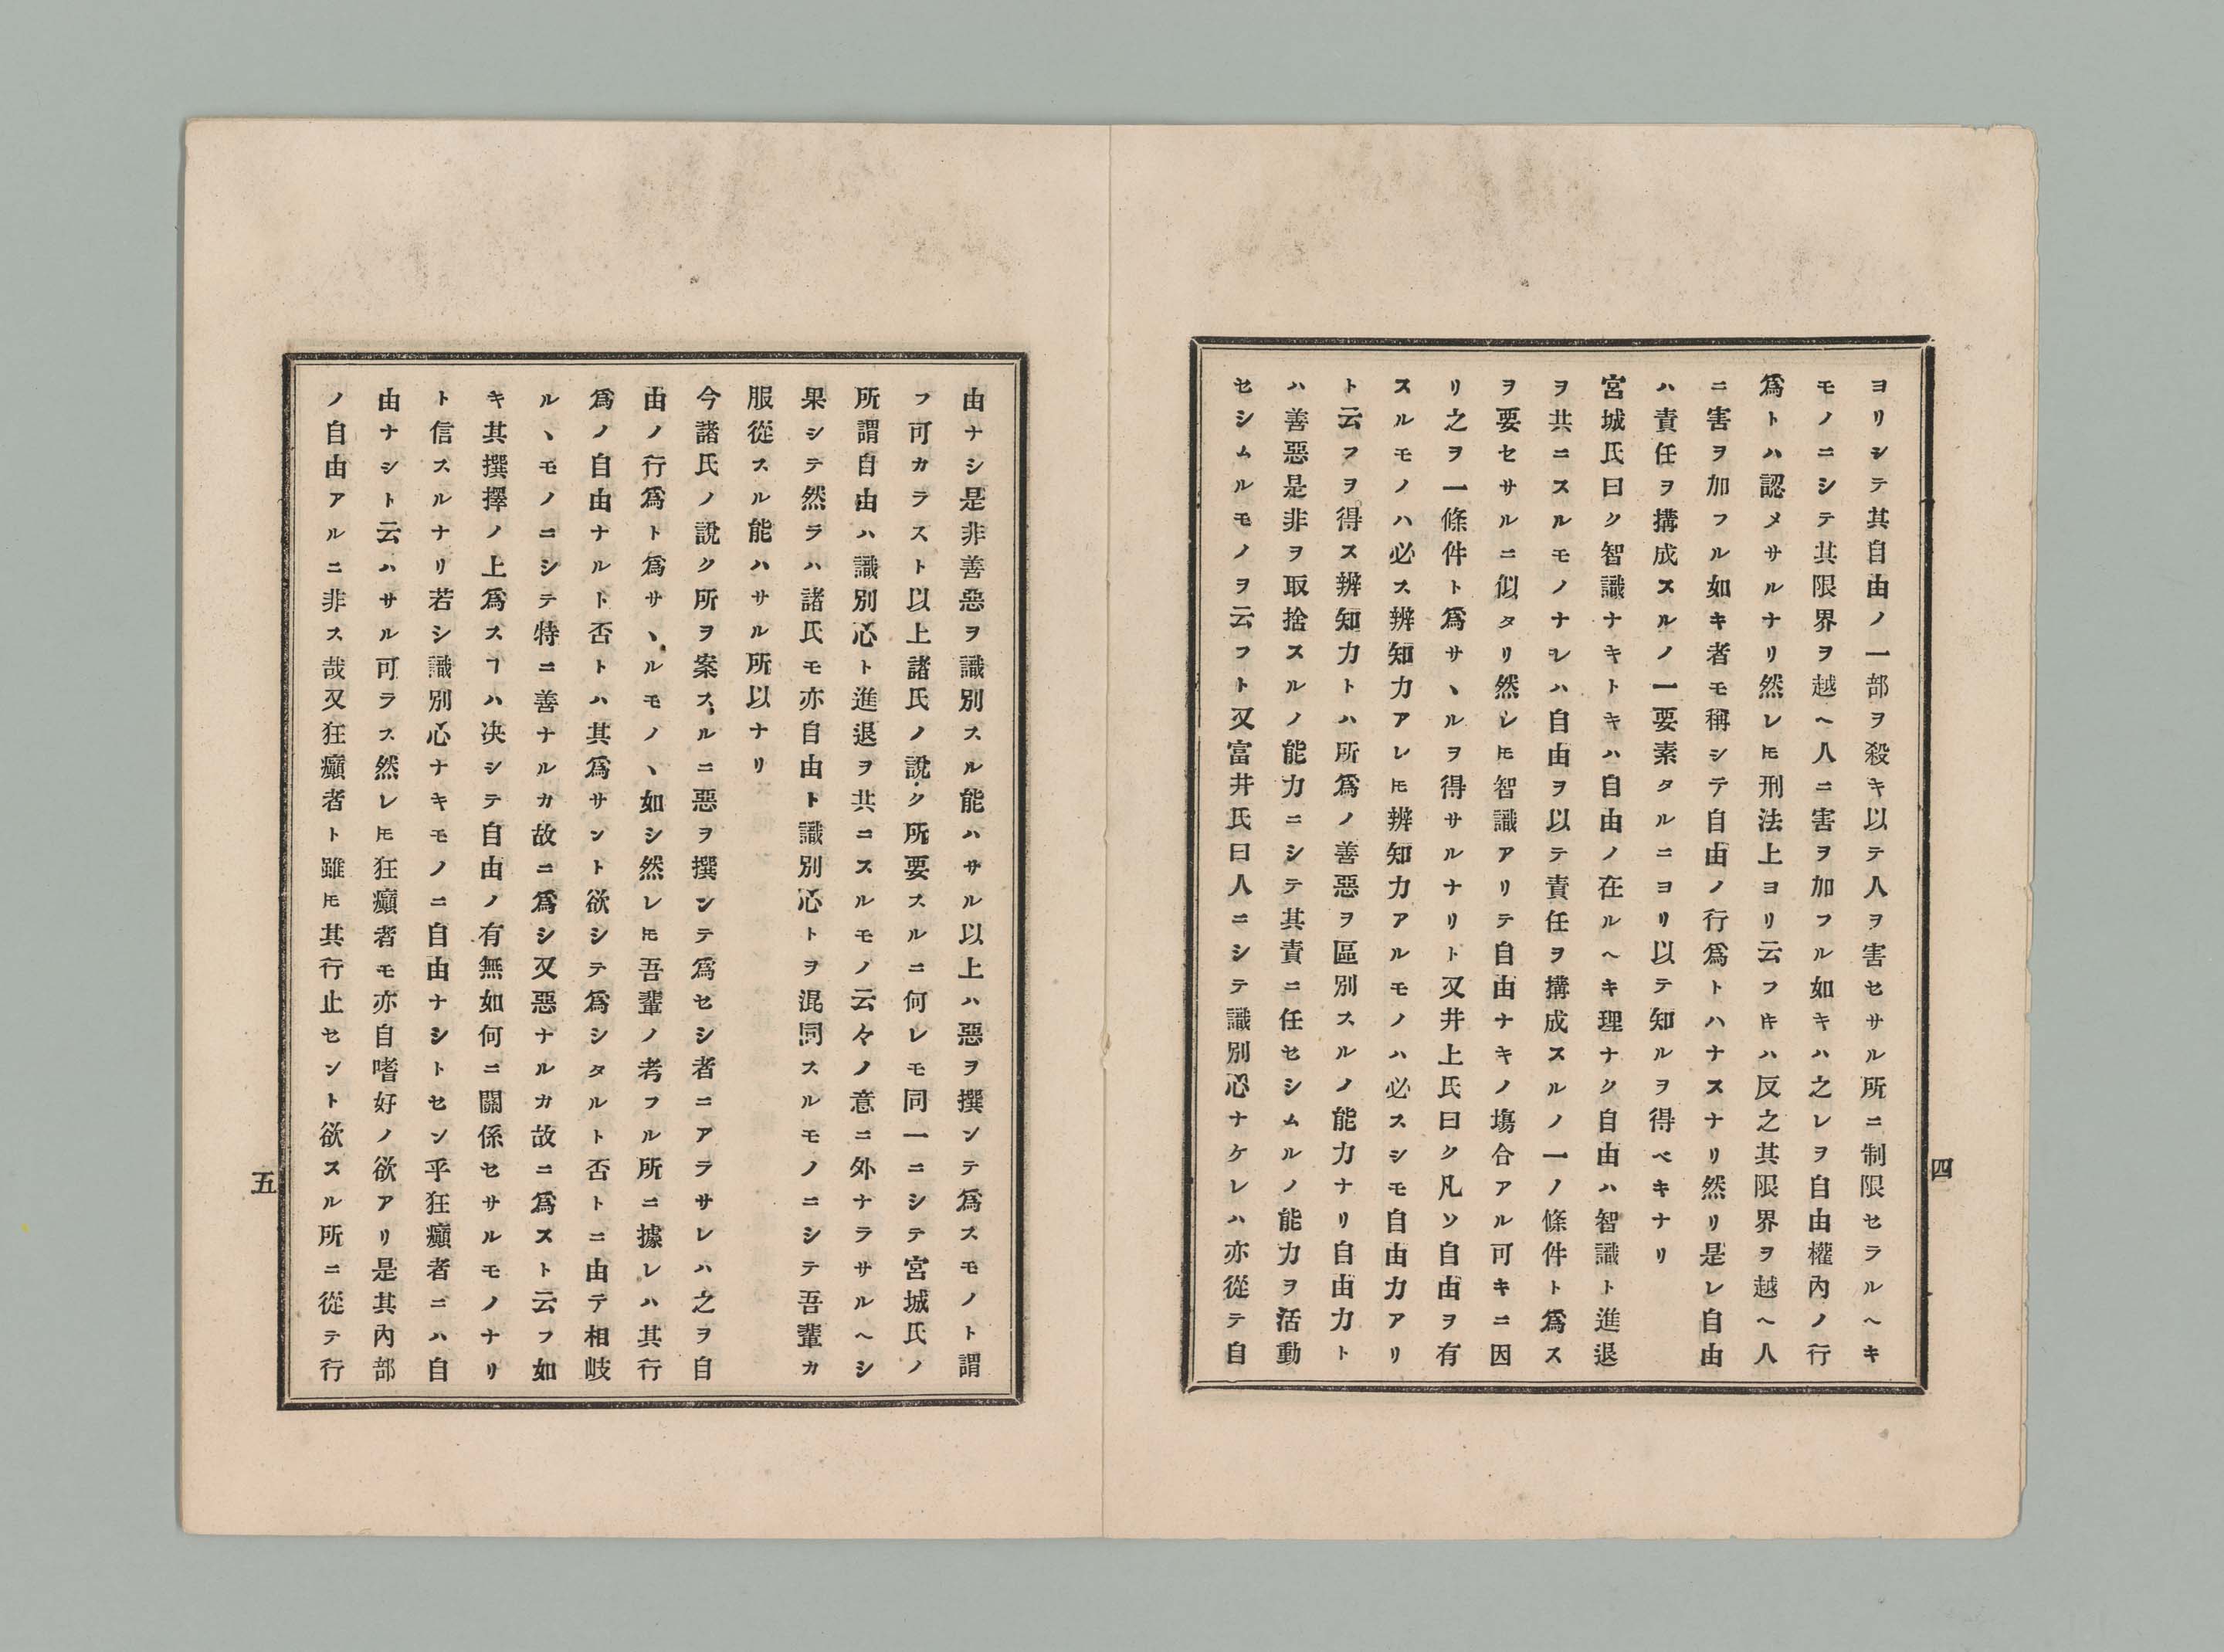 ヨリシテ其自由ノ一部ヲ殺キ以テ人ヲ害セサル所ニ制限セラルヘキ
モノニシテ其限界ヲ越ヘ人ニ害ヲ加フル如キハ之レヲ自由權內ノ行
爲トハ認メサルナリ然レ𪜈刑法上ヨリ云フ𪜇ハ反之其限界ヲ越ヘ人
ニ害ヲ加フル如キ者モ稱シテ自由ノ行爲トハナスナリ然リ是レ自由
ハ責任ヲ搆成スルノ一要素タルニヨリ以テ知ルヲ得ベキナリ
宮城氏曰ク智識ナキトキハ自由ノ在ルヘキ理ナク自由ハ智識ト進退
ヲ共ニスルモノナレハ自由ヲ以テ責任ヲ搆成スルノ一ノ條件ト爲ス
ヲ要セサルニ似タリ然レ𪜈智識アリテ自由ナキノ塲合アル可キニ因
リ之ヲ一條件ト爲サヽルヲ得サルナリト又井上氏曰ク凡ソ自由ヲ有
スルモノハ必ス辨知力アレ𪜈辨知力アルモノハ必スシモ自由力アリ
ト云フヲ得ス辨知力トハ所爲ノ善惡ヲ區別スルノ能力ナリ自由力ト
ハ善惡是非ヲ取捨スルノ能力ニシテ其責ニ任セシムルノ能力ヲ活動
セシムルモノヲ云フト又富井氏曰人ニシテ識別心ナケレハ亦從テ自
四
由ナシ是非善惡ヲ識別スル能ハサル以上ハ惡ヲ撰ンテ爲スモノト謂
フ可カラスト以上諸氏ノ說ク所要スルニ何レモ同一ニシテ宮城氏ノ
所謂自由ハ識別心ト進退ヲ共ニスルモノ云々ノ意ニ外ナラサルヘシ
果シテ然ラハ諸氏モ亦自由ト識別心トヲ混同スルモノニシテ吾輩カ
服從スル能ハサル所以ナリ
今諸氏ノ說ク所ヲ案スルニ惡ヲ撰ンテ爲セシ者ニアラサレハ之ヲ自
由ノ行爲ト爲サヽルモノヽ如シ然レ𪜈吾輩ノ考フル所ニ據レハ其行
爲ノ自由ナルト否トハ其爲サント欲シテ爲シタルト否トニ由テ相岐
ルヽモノニシテ特ニ善ナルカ故ニ爲シ又惡ナルカ故ニ爲スト云フ如
キ其撰擇ノ上爲スヿハ决シテ自由ノ有無如何ニ關係セサルモノナリ
ト信スルナリ若シ識別心ナキモノニ自由ナシトセン乎狂癲者ニハ自
由ナシト云ハサル可ラス然レ𪜈狂癲者モ亦自嗜好ノ欲アリ是其內部
ノ自由アルニ非ス哉又狂癲者ト雖𪜈其行止セント欲スル所ニ從テ行
五